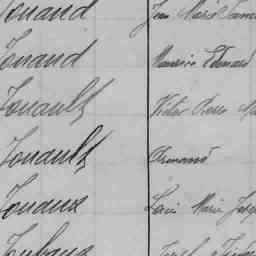 Jouand Jean Marie
Jouand Maurice Edouard
Jouault Victor Pierre
Jouault Armand
Jouaux Louis Marie Joseph
Joubaux